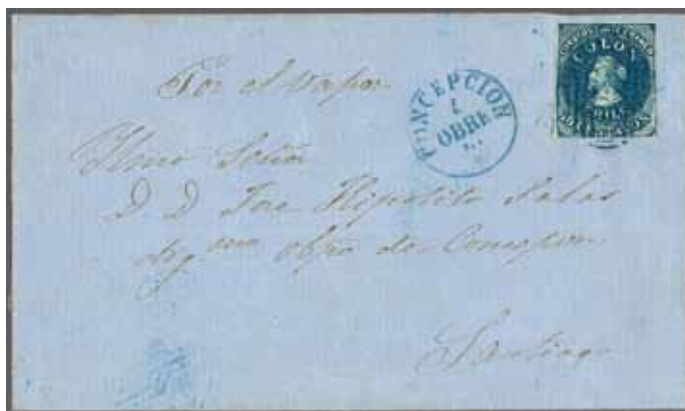 Por el vapor
CONCEPCION
1
OBRE
COLON
CHILE
Ilmo Señor
D. D Jose Hipolito Salas
dig mo obpo de Concepon
Santiago